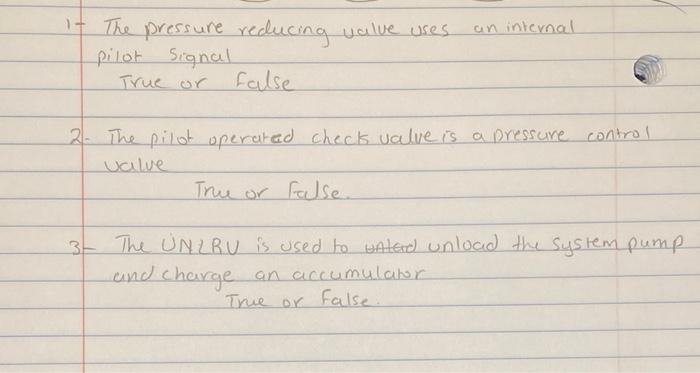 1- The pressure reducing valve uses an internal
pilot Signal
True or False
2- The pilot operated check valve is a pressure control
valve
True or False.
3- The UNLRV is used to unload the system pump
and charge an accumulator
True or False.